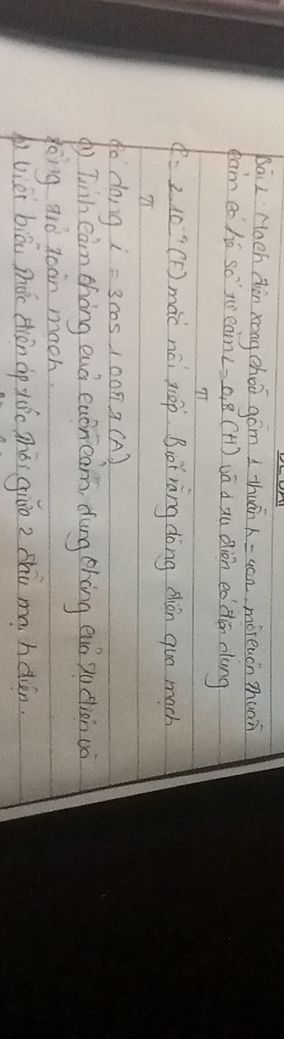 Bài 1. Mạch điện xoay chiều gồm 1 thuần R = 40Ω, một cuộn thuần
cảm có hệ số tự cảm L = 0,8/π (H) và 1 tụ điện có điện dung
C = 2.10⁻⁴/π (F) mắc nối tiếp. Biết rằng dòng điện qua mạch
có dạng i = 3cos100πt (A)
a) Tính cảm kháng của cuộn cảm, dung kháng của tụ điện và
tổng trở toàn mạch.
b) Viết biểu thức điện áp tức thời giữa 2 đầu mạch điện.